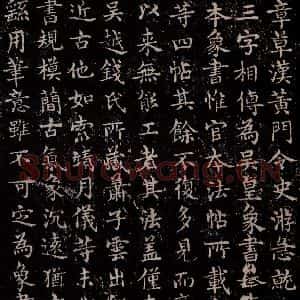 章草漢黃門令史游急就
三字相傳為吳皇象書
本象書惟官法帖所載
等四帖其餘不復多見而
以來無能工者其法益僅
吳越錢氏所藏蕭子雲出
近古他如索靖月儀等未
書規模簡古氣象沉遠猶
繇用筆意雖不可定為象
Shufawang.CN